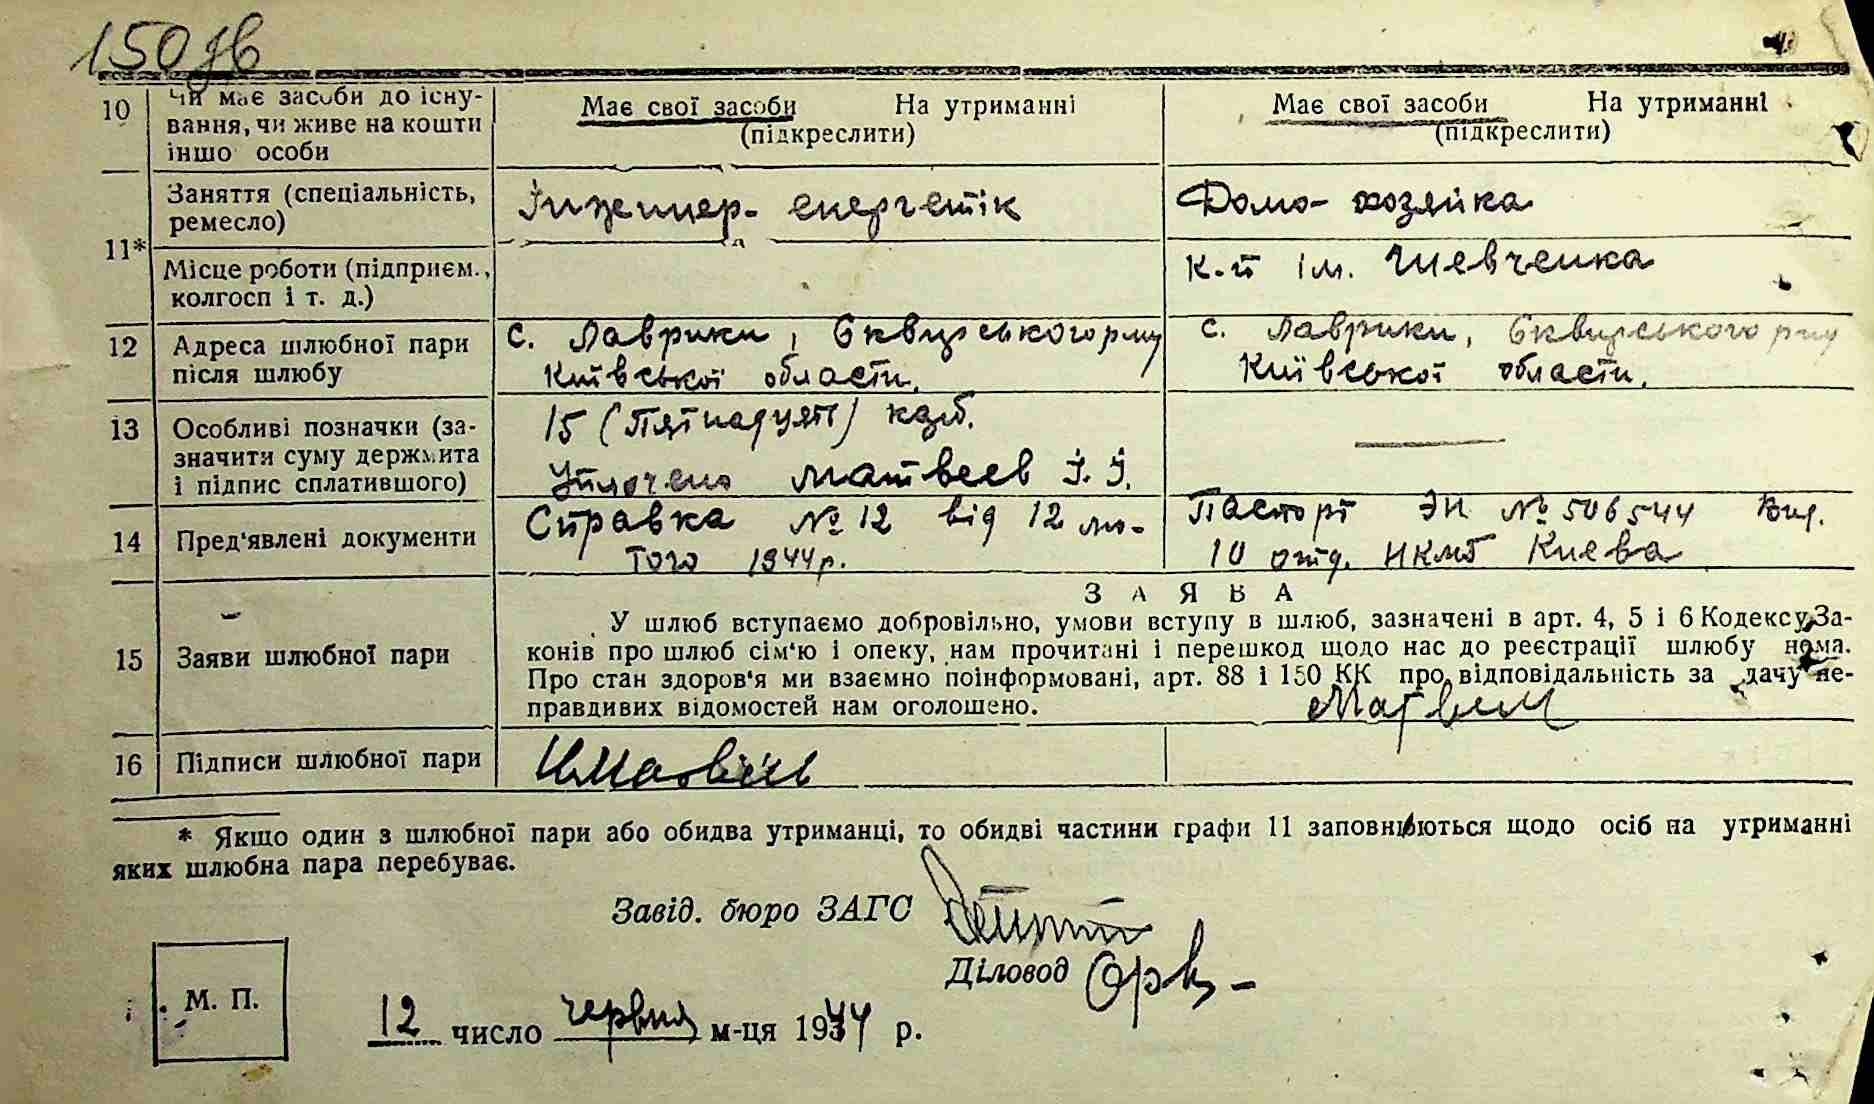 150зв
10 Чи має засоби до існу-
вання, чи живе на кошти
іншо особи
Має свої засоби На утриманні
(підкреслити)
Має свої засоби На утриманні
(підкреслити)
11*
Заняття (спеціальність,
ремесло)
Інженер- енергетік
Домо- хозяйка
Місце роботи (підприєм.,
колгосп і т. д.)
к-п ім. Шевченка
12 Адреса шлюбної пари
після шлюбу
с. Лаврики, Сквирського р-ну
Київської области.
с. Лаврики, Сквирського р-ну
Київської области.
13 Особливі позначки (за-
значити суму держмита
і підпис сплатившого)
15 (Пятнадцять) карб.
Уплочено Матвеев І. І.
14 Пред'явлені документи
Справка № 12 від 12 лю-
того 1944 р.
Паспорт ЭН № 506544 вид.
10 отд. НКМ Киева
З А Я В А
15 Заяви шлюбної пари
У шлюб вступаємо добровільно, умови вступу в шлюб, зазначені в арт. 4, 5 і 6 Кодексу За-
конів про шлюб сім'ю і опеку, нам прочитані і перешкод щодо нас до реєстрації шлюбу нема.
Про стан здоров'я ми взаємно поінформовані, арт. 88 і 150 КК про відповідальність за дачу не-
правдивих відомостей нам оголошено.
16 Підписи шлюбної пари
* Якщо один з шлюбної пари або обидва утриманці, то обидві частини графи 11 заповнюються щодо осіб на утриманні
яких шлюбна пара перебуває.
Завід. бюро ЗАГС
Діловод
М. П.
12 число червня м-ця 1944 р.